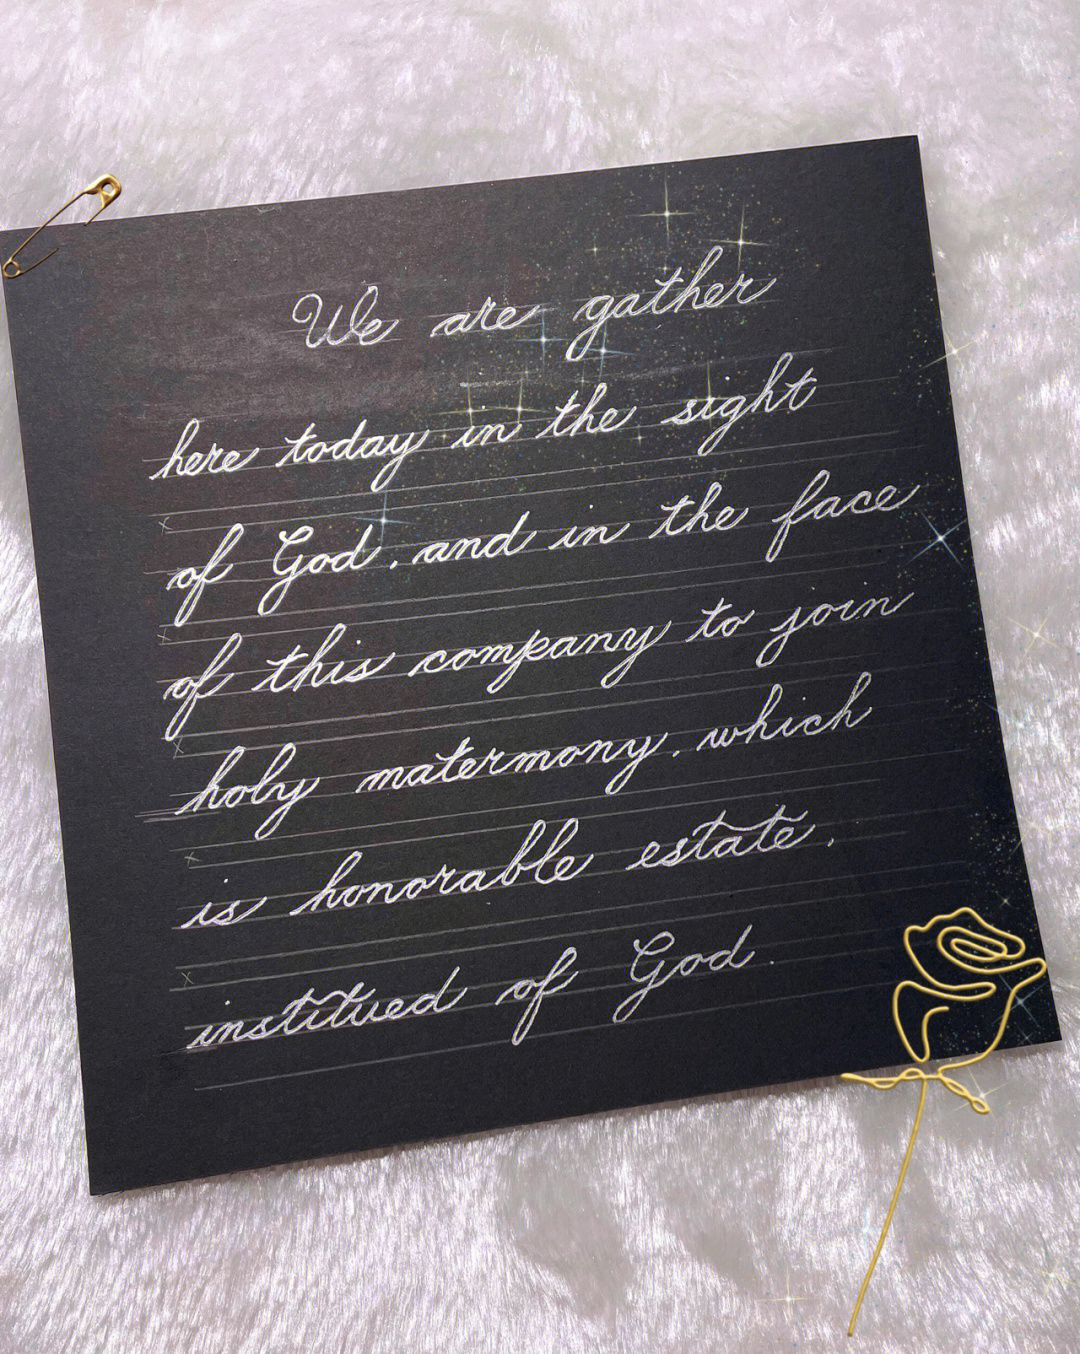 We are gather
here today in the sight
of God, and in the face
of this company to join
holy matermony, which
is honorable estate,
institued of God.